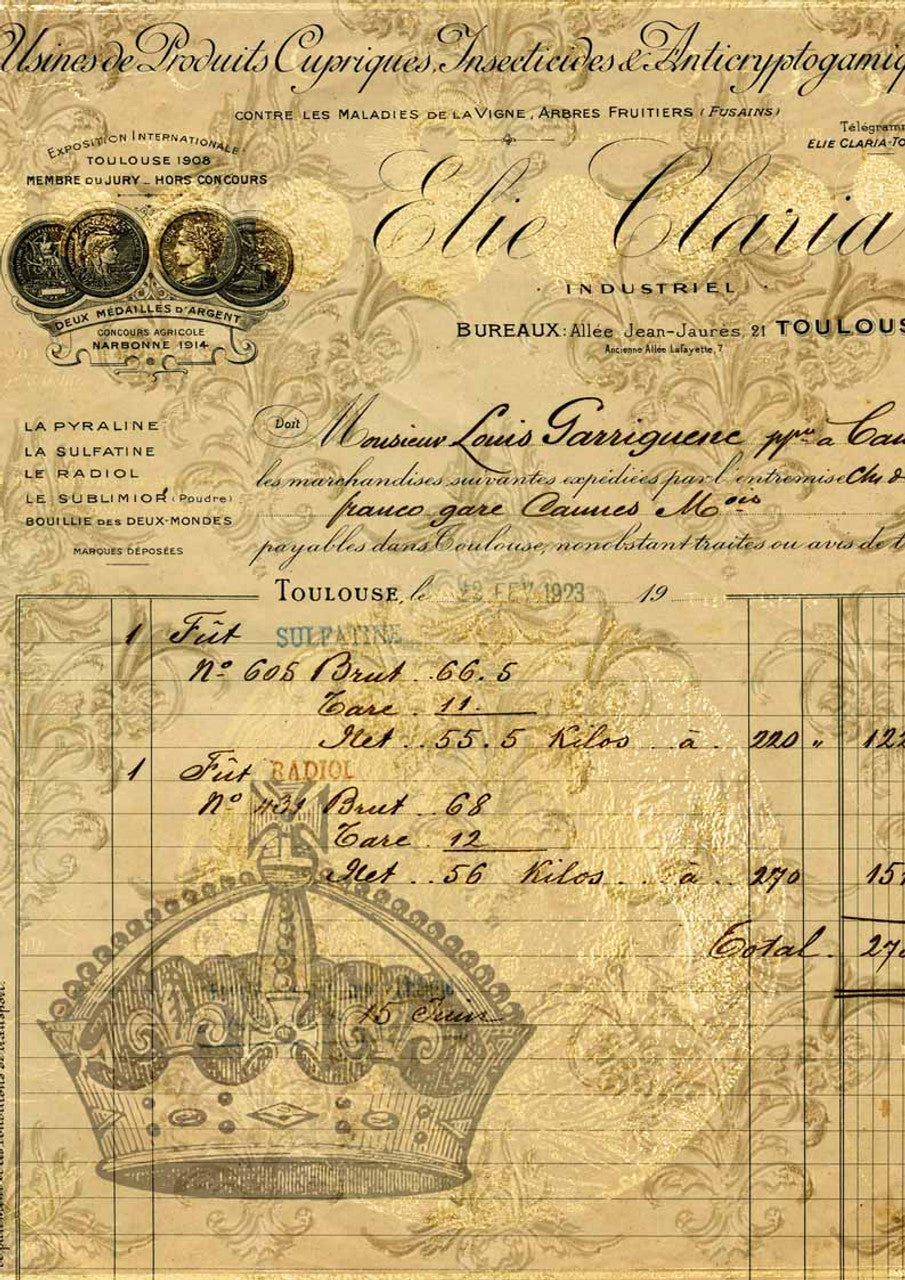 Usines de Produits Cupriques, Insecticides & Anticryptogamiq
CONTRE LES MALADIES DE LA VIGNE, ARBRES FRUITIERS (FUSAINS)
Télégramm
ELIE CLARIA-TO
EXPOSITION INTERNATIONALE
TOULOUSE 1908
MEMBRE DU JURY _ HORS CONCOURS
Elie Claria
INDUSTRIEL
DEUX MÉDAILLES D'ARGENT
CONCOURS AGRICOLE
NARBONNE 1914
BUREAUX: Allée Jean-Jaurès, 21 TOULOUS
Ancienne Allée Lafayette, 7
LA PYRALINE
LA SULFATINE
LE RADIOL
LE SUBLIMIOR (Poudre)
BOUILLIE DES DEUX-MONDES
MARQUES DÉPOSÉES
Doit Monsieur Louis Garriguenc pp^re à Cau
les marchandises suivantes expédiées par l'entremise Ch. d
franco gare Caunes M^ois
payables dans Toulouse, nonobstant traites ou avis de t
TOULOUSE, le 22 FEV 1923 19
1 Fût SULFATINE
N° 605 Brut . 66.5
Tare . 11.
Net . . 55.5 Kilos . à . 220 " 122
1 Fût RADIOL
N° 431 Brut . . 68
Tare . 12
Net . . 56 Kilos . . à . . 270 151
Total . 27
15 Juin